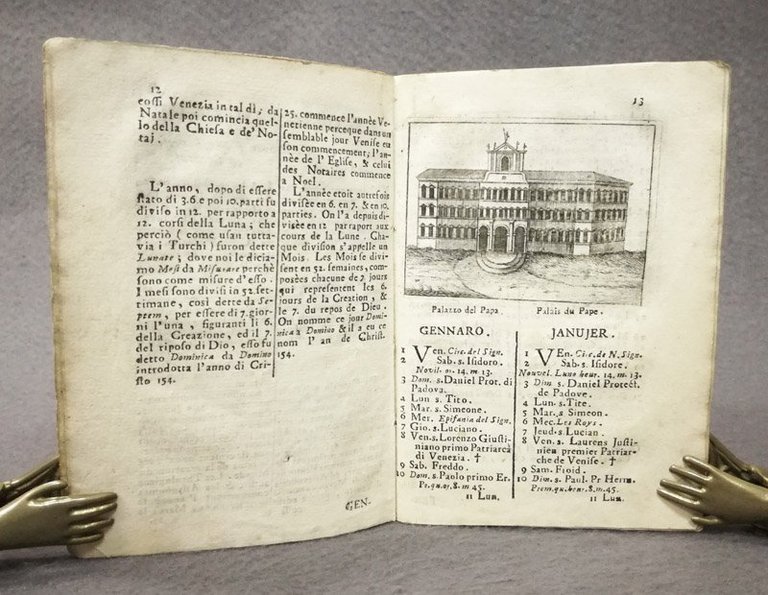 12
cossì Venezia in tal dì; da
Natale poi comincia quel-
lo della Chiesa e de' No-
taj.
L'anno, dopo di essere
stato di 3.6.e poi 10.parti fu
diviso in 12. per rapporto a
12. corsi della Luna; che
perciò (come usan tutta-
via i Turchi) furon dette
Lunate; dove noi le dicia-
mo Mesi da Misurare perchè
sono come misure d'esso.
I mesi son divisi in 52.set-
timane, così dette da Se-
ptem, per essere di 7.gior-
ni l'una, figuranti li 6.
della Creazione, ed il 7.
del riposo di Dio, esso fu
detto Dominica da Domino
introdotta l'anno di Cri-
sto 154.
25. commence l'annèe Ve-
netienne perceque dans un
semblable jour Venise eu
son commencement; l'an-
nèe de l'Eglise, & celui
des Notaires commence
a Noel.
L'annèe etoit autrefois
divisèe en 6. en 7. & en 10.
parties. On l'a depuis di-
visèe en 12 par raport aux
cours de la Lune. Cha-
que division s'appelle un
Mois. Les Mois se divi-
sent en 52. semaines, com-
posèes chacune de 7 jours
qui representent les 6.
jours de la Creation, &
le 7. du repos de Dieu.
On nomme ce jour Domi-
nica a Domino & il a eu ce
nom l'an de Christ.
154.
GEN.
13
Palazzo del Papa. Palais du Pape.
GENNARO.
1 Ven. Circ. del Sign.
2 Sab. s. Isidoro.
Novil. or. 14. m. 13.
3 Dom. s. Daniel Prot. di
Padova.
4 Lun s. Tito.
5 Mar. s. Simeone.
6 Mer. Epifania del Sign.
7 Gio. s. Luciano.
8 Ven. s. Lorenzo Giusti-
niano primo Patriarca
di Venezia. †
9 Sab. Freddo
10 Dom. s. Paolo primo Er.
Pr. qu. or. 8. m 45.
11 Lun.
JANUJER.
1 VEn. Circ. de N. Sign.
2 Sab. s. Isidore.
Nouvel. Lune heur. 14. m. 13.
3 Dim s. Daniel Protect.
de Padove.
4 Lun. s. Tite.
5 Mar. s Simeon.
6 Mec. Les Roys.
7 Jeud. s. Lucian.
8 Ven. s. Laurens Justi-
nien premier Patriar-
che de Venise. †
9 Sam. Froid.
10 Dim. s. Paul. Pr Herm.
Prem. qu. heur. 8. m 45.
11 Lun.